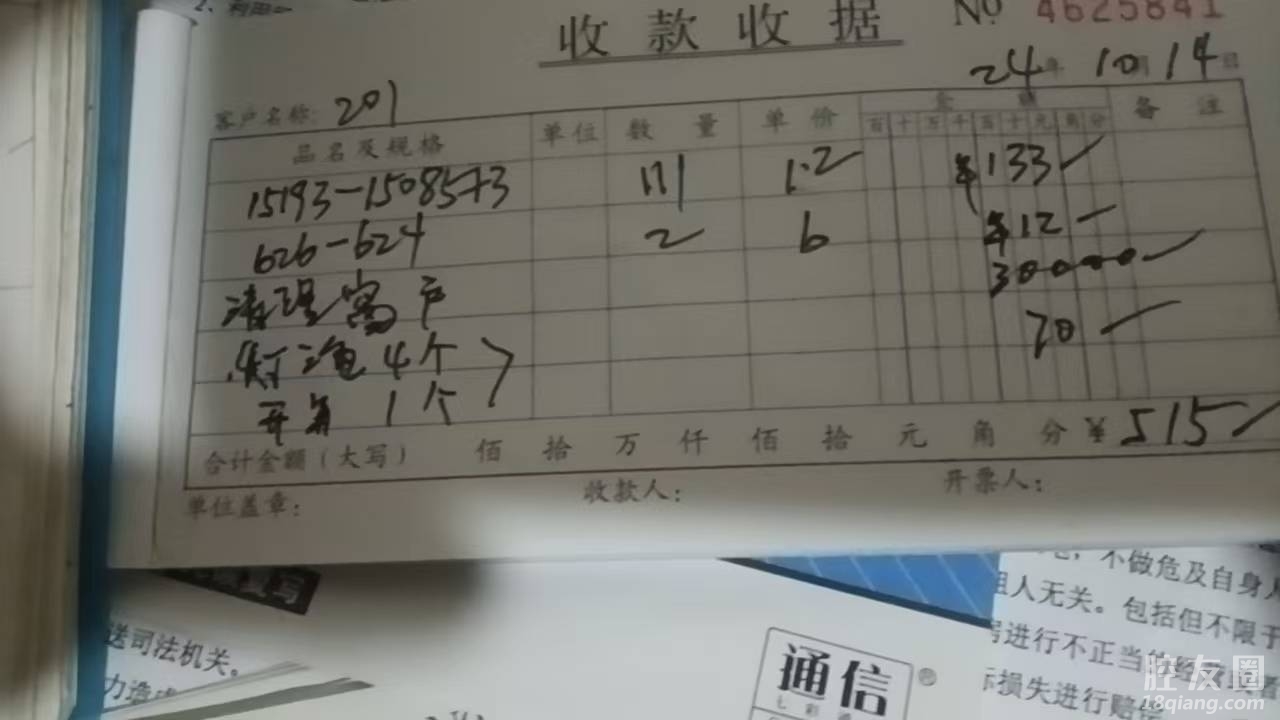 2、利用
收款收据
No 4625841
24年10月14日
客户名称: 201
品名及规格 单位 数量 单价 金额 备注
百十万千百十元角分
15193-15085+3 111 1.2 ¥133
626-624 2 6 ¥12
清理窗户 30000
灯泡4个 70
开关1个
合计金额(大写) 佰 拾 万 仟 佰 拾 元 角 分 ¥ 515
单位盖章: 收款人: 开票人:
不做危及自身人
人无关。包括但不限于
送司法机关。
进行不正当的经营或者
力造成
损失进行赔偿
通信®
七彩
腔友圈
18qiang.com